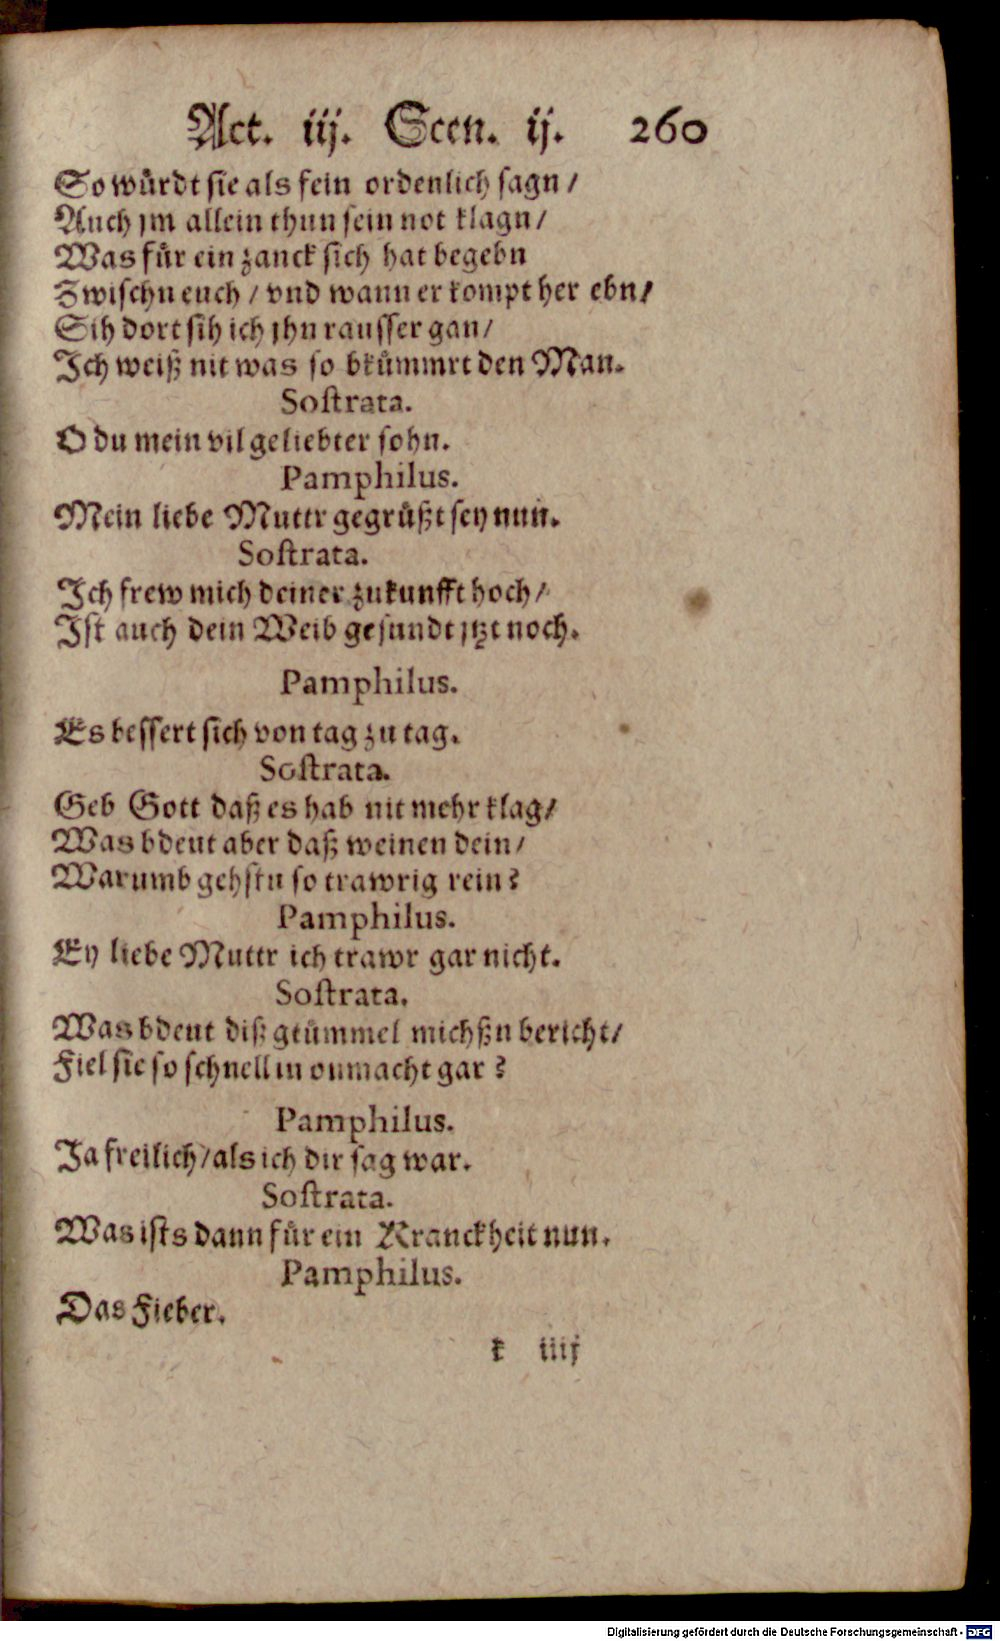 Act. iij. Scen. ij. 260
So wuͤrdt sie als fein ordenlich sagn /
Auch jm allein thun sein not klagn /
Was fuͤr ein zanck sich hat begebn
Zwischn euch / vnd wann er kompt her ebn /
Sih dort sih ich jhn rausser gan /
Ich weiß nit was so bkuͤmmrt den Man.
Sostrata.
O du mein vil geliebter sohn.
Pamphilus.
Mein liebe Muttr gegruͤßt sey nun.
Sostrata.
Ich frew mich deiner zukunfft hoch /
Ist auch dein Weib gesundt jtzt noch.
Pamphilus.
Es bessert sich von tag zu tag.
Sostrata.
Geb Gott daß es hab nit mehr klag /
Was bdeut aber daß weinen dein /
Warumb gehstu so trawrig rein?
Pamphilus.
Ey liebe Muttr ich trawr gar nicht.
Sostrata.
Was bdeut diß gtuͤmmel michßn bericht /
Fiel sie so schnell in onmacht gar?
Pamphilus.
Ja freilich / als ich dir sag war.
Sostrata.
Was ists dann fuͤr ein Kranckheit nun.
Pamphilus.
Das Fieber.
k iiij
Digitalisierung gefördert durch die Deutsche Forschungsgemeinschaft - DFG